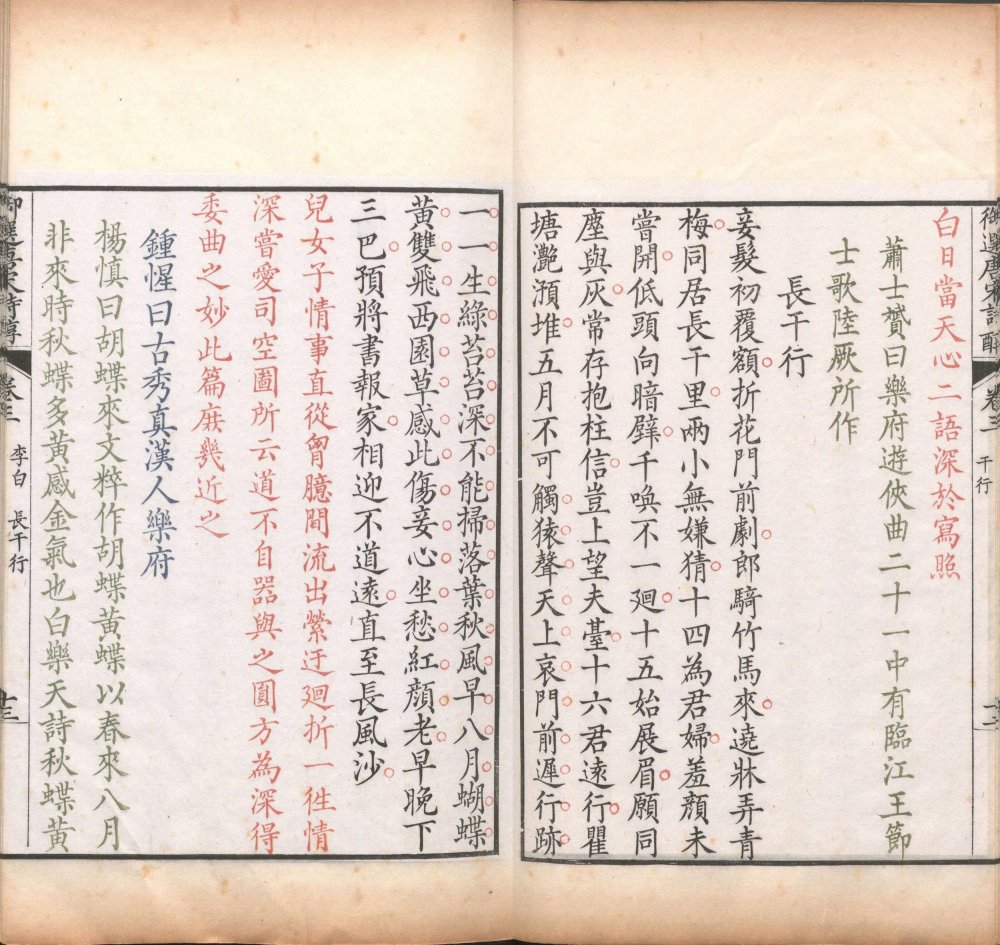 御選唐宋詩醇 卷三 干行
白日當天心二語深於寫照
蕭士贇曰樂府遊俠曲二十一中有臨江王節
士歌陸厥所作
長干行
妾髮初覆額折花門前劇郎騎竹馬來遶牀弄青
梅同居長干里兩小無嫌猜十四為君婦羞顏未
嘗開低頭向暗壁千喚不一廻十五始展眉願同
塵與灰常存抱柱信豈上望夫臺十六君遠行瞿
塘灔澦堆五月不可觸猿聲天上哀門前遲行跡
一一生綠苔苔深不能掃落葉秋風早八月蝴蝶
黃雙飛西園草感此傷妾心坐愁紅顏老早晚下
三巴預將書報家相迎不道遠直至長風沙
兒女子情事直從胷臆間流出縈迂廻折一徃情
深嘗愛司空圖所云道不自器與之圓方為深得
委曲之妙此篇庶幾近之
鍾惺曰古秀真漢人樂府
楊慎曰胡蝶來文粹作胡蝶黃蝶以春來八月
非來時秋蝶多黃感金氣也白樂天詩秋蝶黃
御選唐宋詩醇 卷三 李白 長干行 十三